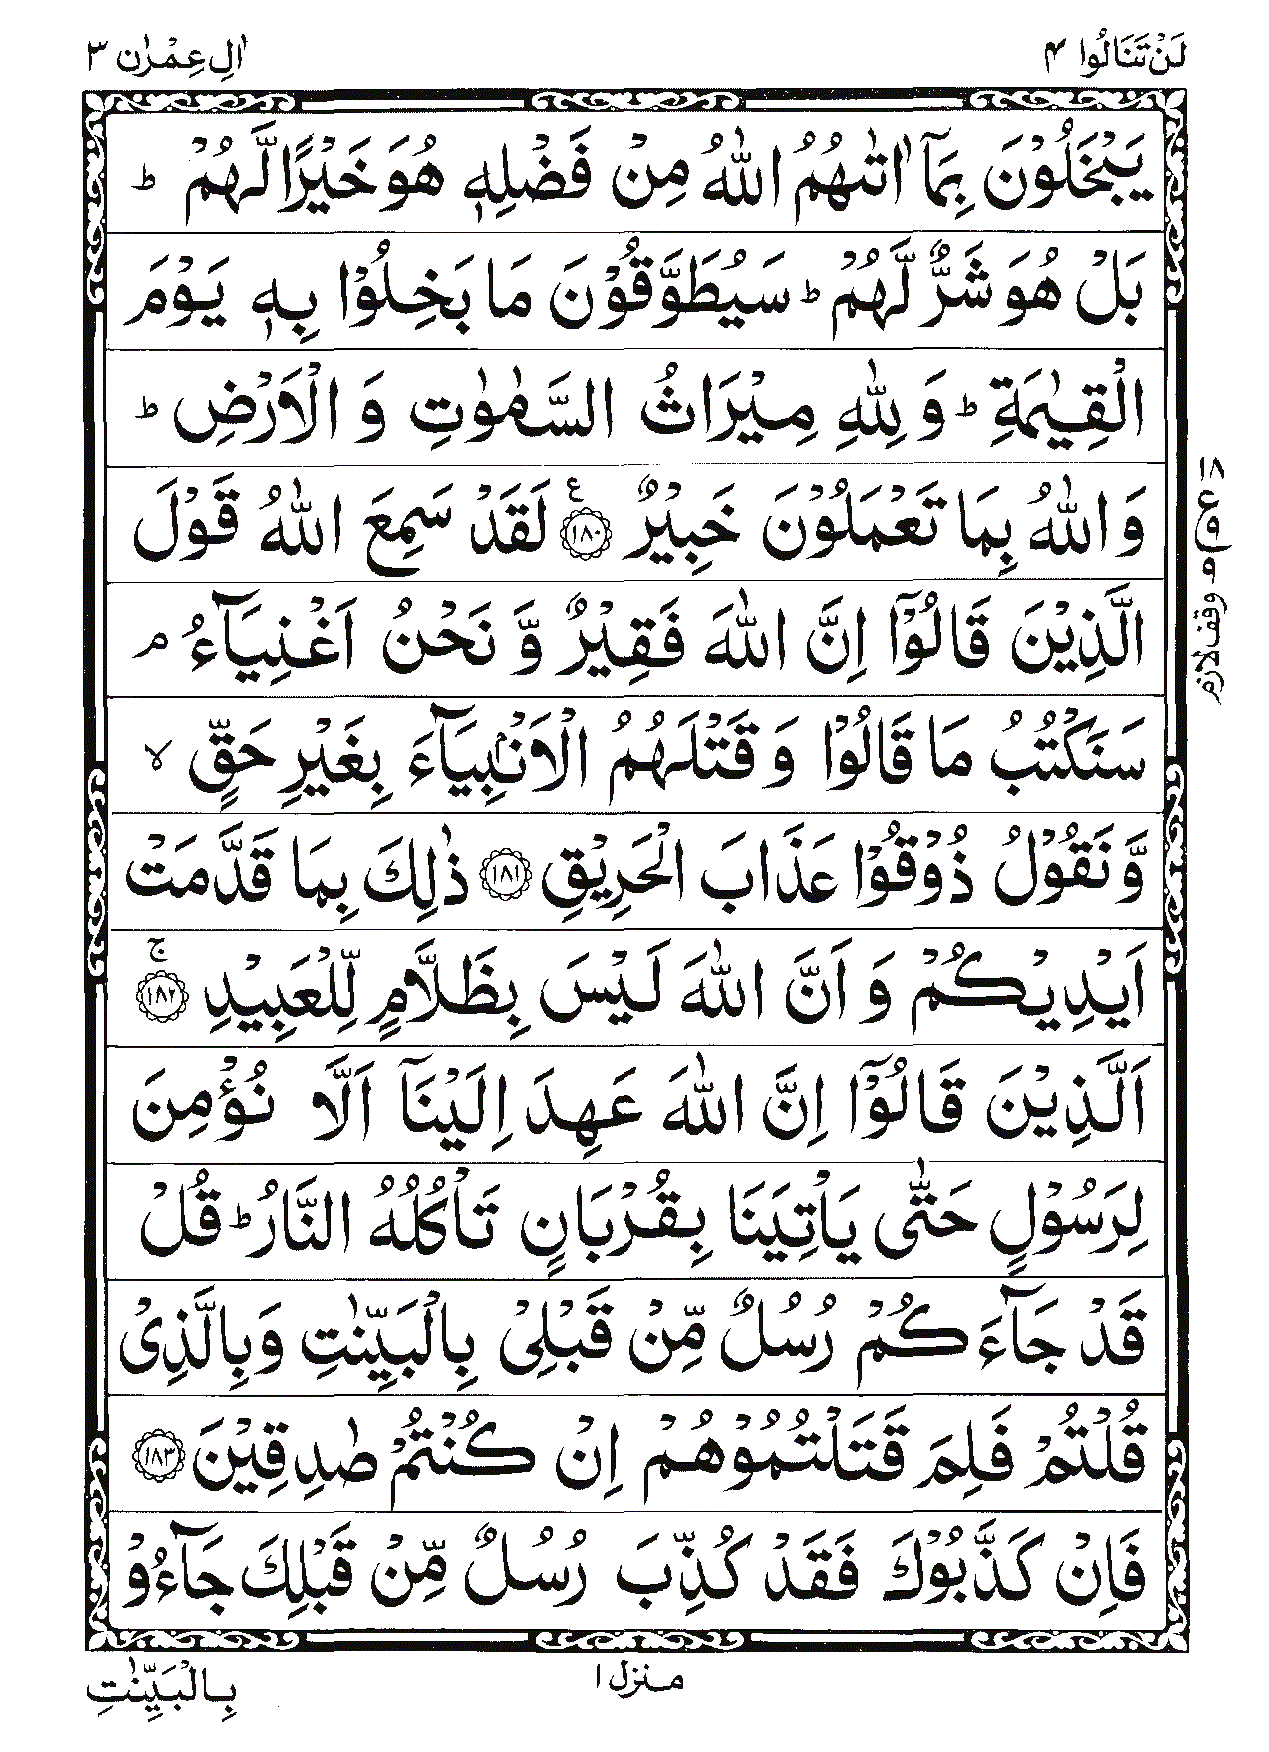 لَنْ تَنَالُوا ۴
اٰلِ عِمْرٰن ۳
يَبْخَلُوْنَ بِمَآ اٰتٰىهُمُ اللّٰهُ مِنْ فَضْلِهٖ هُوَ خَيْرًا لَّهُمْ ؕ
بَلْ هُوَ شَرٌّ لَّهُمْ ؕ سَيُطَوَّقُوْنَ مَا بَخِلُوْا بِهٖ يَوْمَ
الْقِيٰمَةِ ؕ وَ لِلّٰهِ مِيْرَاثُ السَّمٰوٰتِ وَ الْاَرْضِ ؕ
وَ اللّٰهُ بِمَا تَعْمَلُوْنَ خَبِيْرٌ ﴿۱۸۰﴾ ع لَقَدْ سَمِعَ اللّٰهُ قَوْلَ
الَّذِيْنَ قَالُوْٓا اِنَّ اللّٰهَ فَقِيْرٌ وَّ نَحْنُ اَغْنِيَآءُ ۘ
سَنَكْتُبُ مَا قَالُوْا وَ قَتْلَهُمُ الْاَنْۢبِيَآءَ بِغَيْرِ حَقٍّ ۙ
وَّ نَقُوْلُ ذُوْقُوْا عَذَابَ الْحَرِيْقِ ﴿۱۸۱﴾ ذٰلِكَ بِمَا قَدَّمَتْ
اَيْدِيْكُمْ وَ اَنَّ اللّٰهَ لَيْسَ بِظَلَّامٍ لِّلْعَبِيْدِ ﴿۱۸۲﴾ ۚ
اَلَّذِيْنَ قَالُوْٓا اِنَّ اللّٰهَ عَهِدَ اِلَيْنَآ اَلَّا نُؤْمِنَ
لِرَسُوْلٍ حَتّٰى يَاْتِيَنَا بِقُرْبَانٍ تَاْكُلُهُ النَّارُ ؕ قُلْ
قَدْ جَآءَكُمْ رُسُلٌ مِّنْ قَبْلِيْ بِالْبَيِّنٰتِ وَبِالَّذِيْ
قُلْتُمْ فَلِمَ قَتَلْتُمُوْهُمْ اِنْ كُنْتُمْ صٰدِقِيْنَ ﴿۱۸۳﴾
فَاِنْ كَذَّبُوْكَ فَقَدْ كُذِّبَ رُسُلٌ مِّنْ قَبْلِكَ جَآءُوْ
۱۸
ع
۹
۹
وقف لازم
منزل ۱
بِالْبَيِّنٰتِ